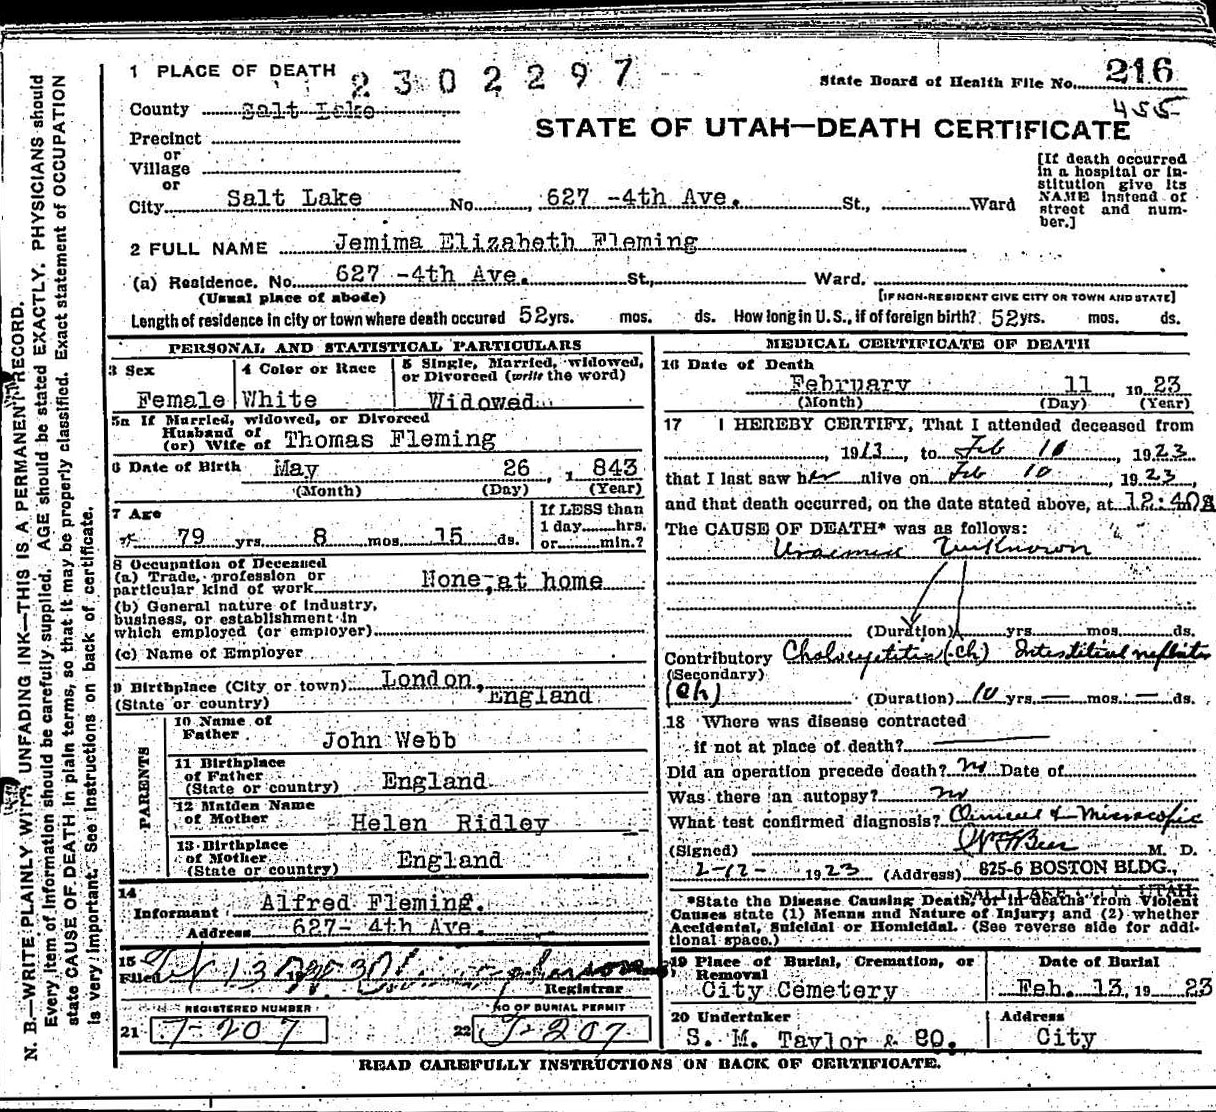 1 PLACE OF DEATH 2302297
State Board of Health File No. 216
County Salt Lake
455
Precinct
STATE OF UTAH—DEATH CERTIFICATE
or
Village
or
City Salt Lake No. 627 -4th Ave. St., Ward
[If death occurred in a hospital or in-
stitution give its
NAME instead of
street and num-
ber.]
2 FULL NAME Jemima Elizabeth Fleming
(a) Residence. No. 627 -4th Ave. St., Ward.
(Usual place of abode) [IF NON-RESIDENT GIVE CITY OR TOWN AND STATE]
Length of residence in city or town where death occured 52 yrs. mos. ds. How long in U. S., if of foreign birth? 52 yrs. mos. ds.
PERSONAL AND STATISTICAL PARTICULARS
3 Sex Female
4 Color or Race White
5 Single, Married, widowed,
or Divorced (write the word)
Widowed
5a If Married, widowed, or Divorced
Husband of
(or) Wife of Thomas Fleming
6 Date of Birth May 26, 1843
(Month) (Day) (Year)
7 Age
79 yrs. 8 mos. 15 ds.
If LESS than
1 day hrs.
or min.?
8 Occupation of Deceased
(a) Trade, profession or
particular kind of work None, at home
(b) General nature of industry,
business, or establishment in
which employed (or employer)
(c) Name of Employer
9 Birthplace (City or town) London,
(State or country) England
PARENTS
10 Name of
Father John Webb
11 Birthplace
of Father England
(State or country)
12 Maiden Name
of Mother Helen Ridley
13 Birthplace
of Mother England
(State or country)
14
Informant Alfred Fleming.
Address 627- 4th Ave.
15
Filed Feb 13
Registrar
REGISTERED NUMBER NO OF BURIAL PERMIT
21 7-207 22 J-207
MEDICAL CERTIFICATE OF DEATH
16 Date of Death
February 11 1923
(Month) (Day) (Year)
17 I HEREBY CERTIFY, That I attended deceased from
, 1913, to Feb 10, 1923
that I last saw her alive on Feb 10, 1923,
and that death occurred, on the date stated above, at 12:40a
The CAUSE OF DEATH* was as follows:
Unknown
(Duration) yrs. mos. ds.
Contributory Cholecystitis (ch) Interstitial nefhritis
(Secondary)
(Ch) (Duration) 10 yrs. — mos. — ds.
18 Where was disease contracted
if not at place of death?
Did an operation precede death? no Date of
Was there an autopsy? no
What test confirmed diagnosis? Clinical & Microscopic
(Signed) M. D.
2-12- 1923 (Address) 825-6 BOSTON BLDG.,
SALT LAKE CITY, UTAH.
*State the Disease Causing Death, or in deaths from Violent
Causes state (1) Means and Nature of Injury; and (2) whether
Accidental, Suicidal or Homicidal. (See reverse side for addi-
tional space.)
19 Place of Burial, Cremation, or
Removal
City Cemetery
Date of Burial
Feb. 13, 1923
20 Undertaker
S. M. Taylor & CO.
Address
City
READ CAREFULLY INSTRUCTIONS ON BACK OF CERTIFICATE.
N. B.—WRITE PLAINLY WITH UNFADING INK—THIS IS A PERMANENT RECORD.
Every item of information should be carefully supplied. AGE should be stated EXACTLY. PHYSICIANS should
state CAUSE OF DEATH in plain terms, so that it may be properly classified. Exact statement of OCCUPATION
is very important. See instructions on back of certificate.